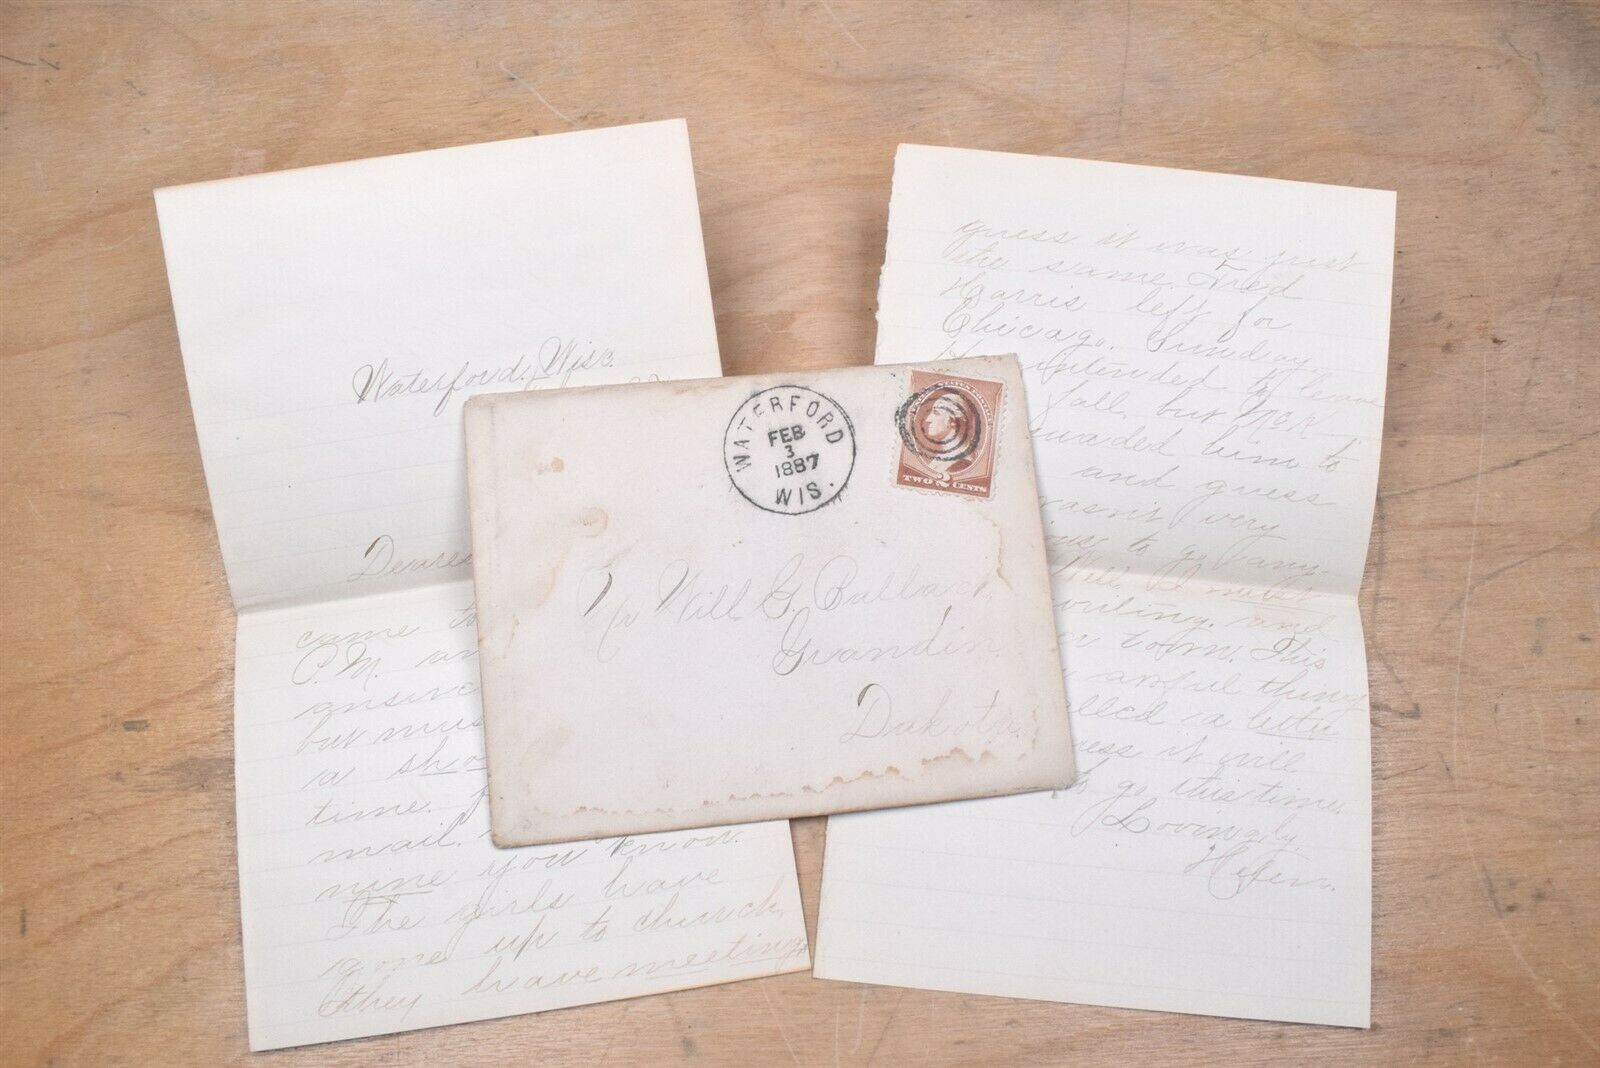 Waterford, Wisc.
Dearest
came to
P.M. an
answe
but mus
a sho
time.
mail.
nine you know.
The girls have
gone up to church,
they have meetings
WATERFORD
FEB
3
1887
WIS.
UNITED STATES POSTAGE
TWO 2 CENTS
Mr Will G. Bullock
Grandin.
Dakota.
guess it was just
the same. Fred
Harris left for
Chicago. Sunday.
He intended to leave
fall, but McK
uaded him to
and guess
wasn't very
to go any-
Will I must
writing. and
to town. This
awful thing
alled a letter
ess it will
to go this time.
Lovingly
Helen.